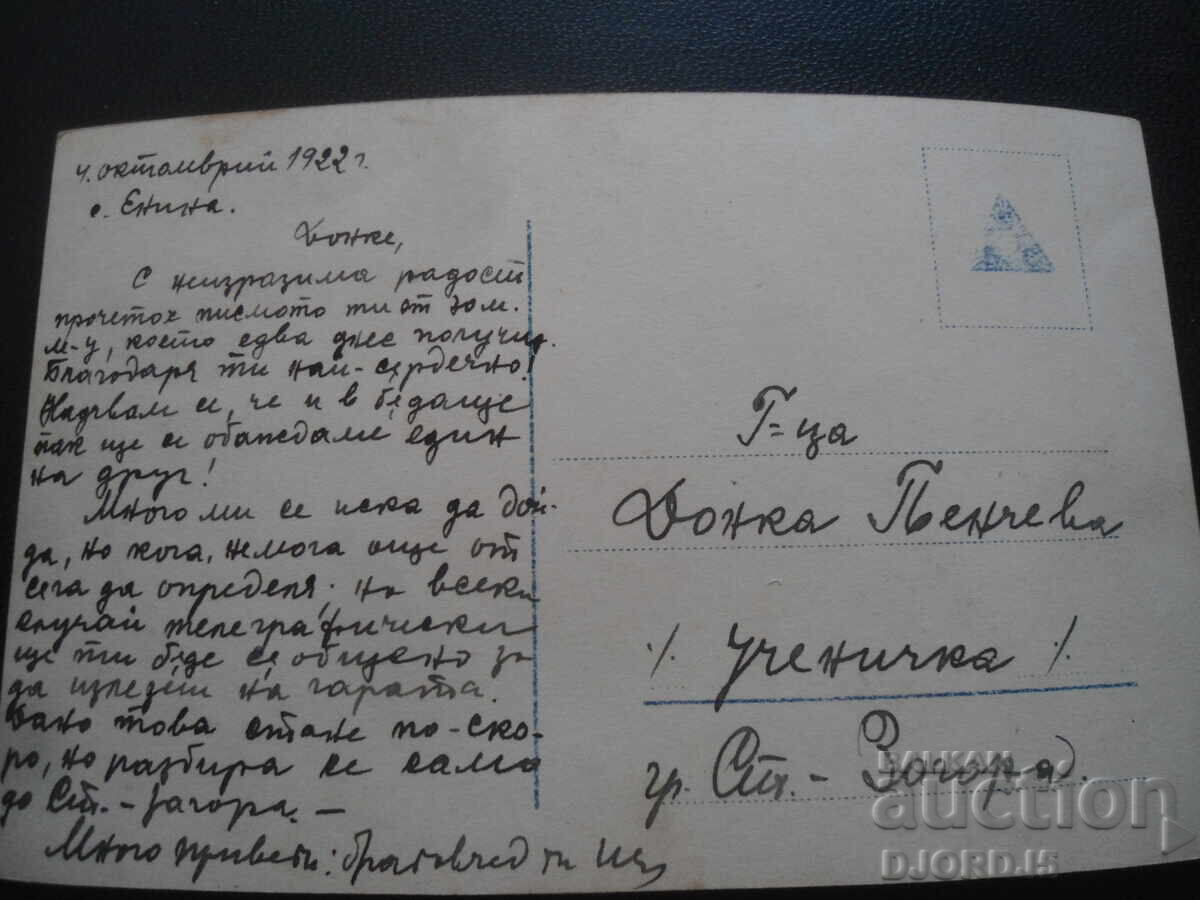 4. октомврий 1922 г.
с. Енина.
Донке,
С неизразима радост
прочетох писмото ти от
м-ц, което едва днес получих.
Благодаря ти най-сърдечно!
Надявам се, че и в бѫдаще
пак ще се обаждаме един
на друг!
Много ми се иска да дой-
да, но кога, немога още от
сега да определя. На всеки
случай телеграфически
ще ти бѫде съобщено за
да излезеш на гарата.
Дано това стане по-ско-
ро, но разбира се само
до Ст.-Загора. -
Много привети: братовчед ти
Г-ца
Донка Пенчева
/. ученичка ./
гр. Ст. - Загора.
BALKAN
auction
DJORDJ5